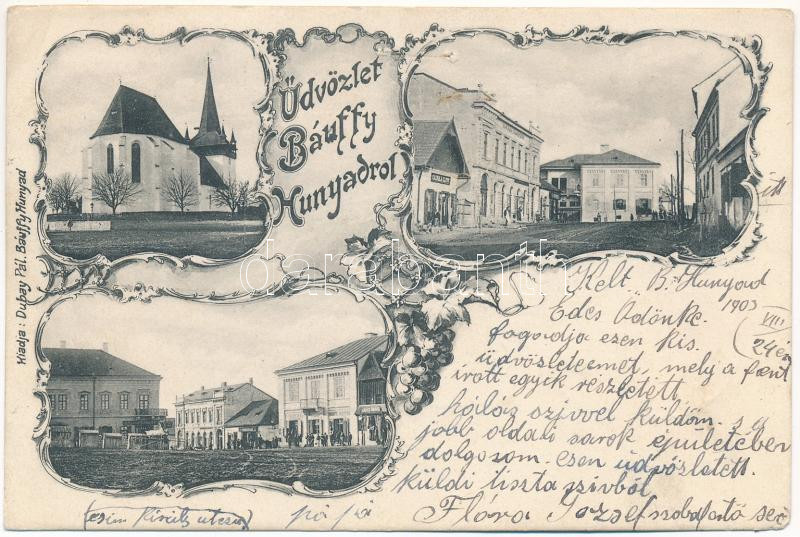 Üdvözlet
Báuffy
Hunyadrol
Kiadja: Dubay Pál. Báuffy-Hunyad
darabanth
Kelt B. Hunyad
1903
VIII
24én
itt
Edes Ödönke.
fogadja ezen kis
üdvözletemet, mely a fœnt
irott egyik reszletett
hálás szivvel küldöm. s a
jobb oldali sarok epületeben
dolgosom. esen üdvözletett.
küldi tiszta szivből
Flóra József szobafestő seč
(czim Király utcza) pá pá